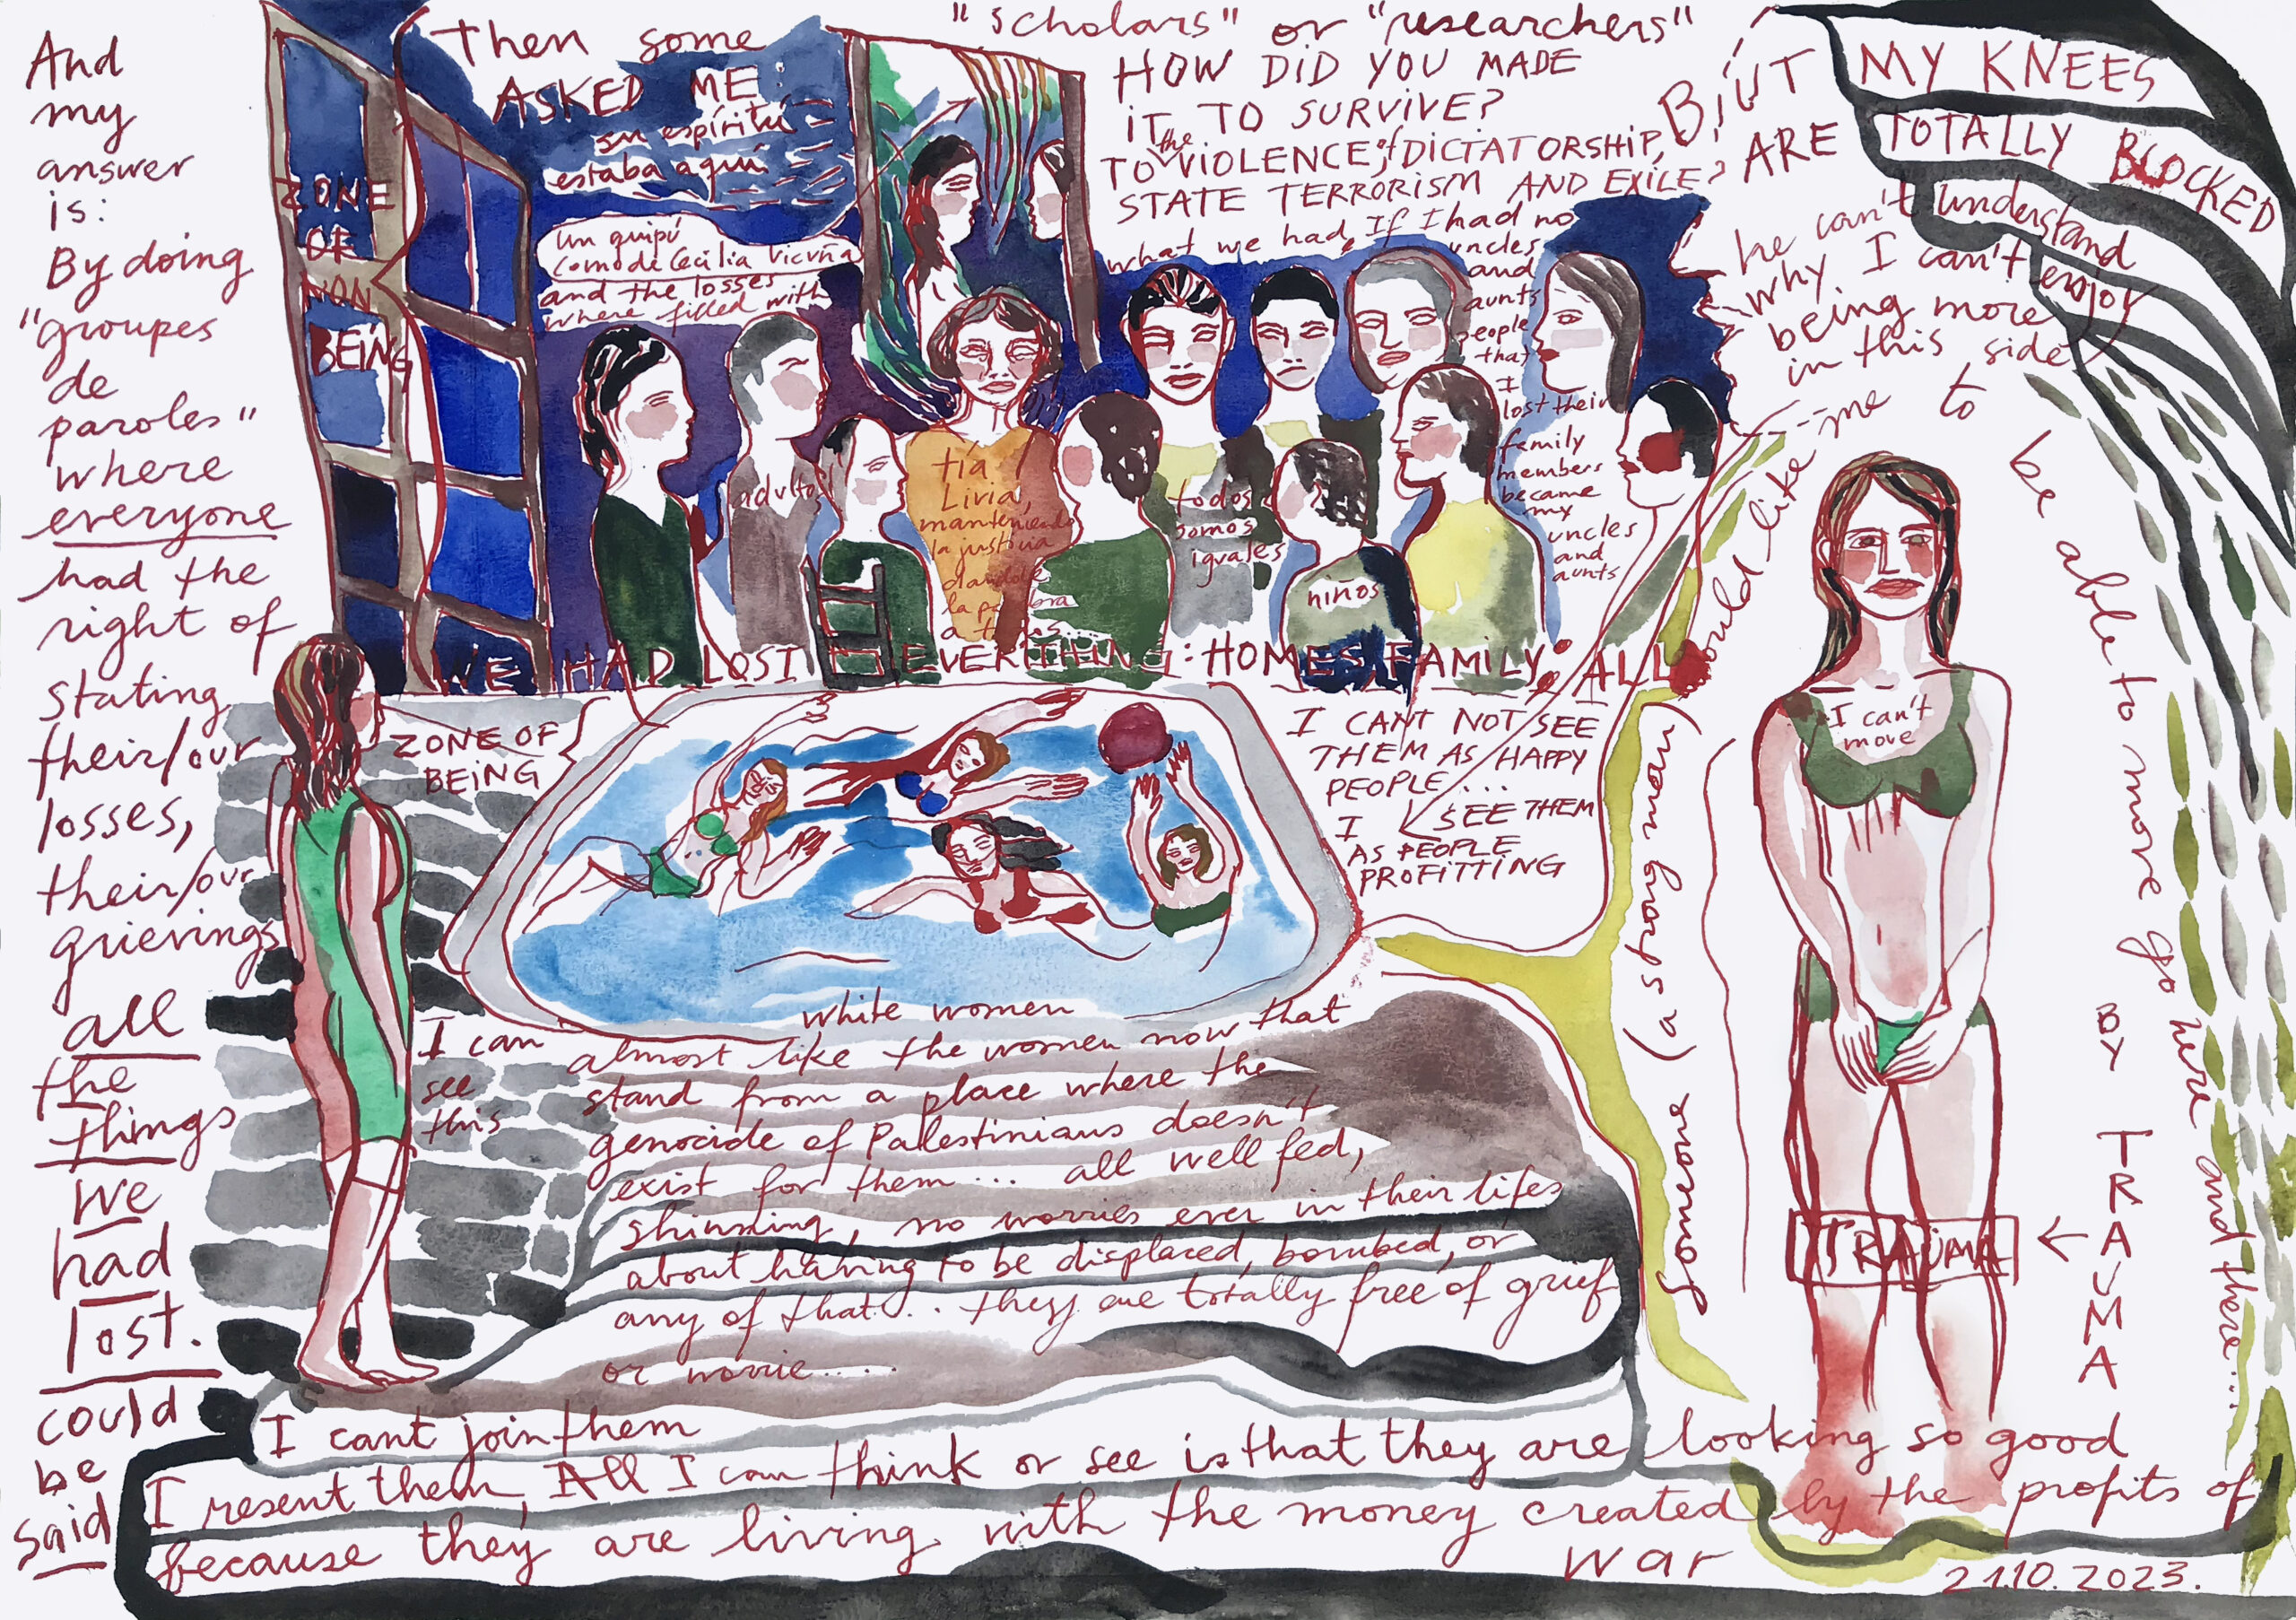 And
my
answer
is:
By doing
"groupes
de
paroles"
where
everyone
had the
right of
stating
their/our
losses,
their/our
grievings
all
the
things
we
had
lost.
could
be
said
ZONE
OF
NON
BEING
Then some
ASKED ME:
"scholars" or "researchers"
HOW DID YOU MADE
IT TO SURVIVE?
TO the VIOLENCE of DICTATORSHIP,
STATE TERRORISM AND EXILE?
su espíritu
estaba aquí
un quipú
como de Cecilia Vicuña
and the losses
where filled with
what we had, If I had no
uncles
and
aunts
people
that
I
lost their
family
members
became
my
uncles
and
aunts
adultos
tía
Livia,
manteniendo
la justicia
dandole
a
todos
somos
iguales
niños
WE HAD LOST EVERITHING: HOMES FAMILY, ALL
BUT MY KNEES
ARE TOTALLY BLOCKED
BY TRAUMA
he can't understand
why I can't enjoy
being more
in this side
Someone (a strong man) would like me to be able to move go here and there....
I can't
move
TRAUMA
ZONE OF
BEING
I CANT NOT SEE
THEM AS HAPPY
PEOPLE ...
I SEE THEM
AS PEOPLE
PROFITTING
I can
see
this
white women
almost like the women now that
stand from a place where the
genocide of Palestinians doesn't
exist for them... all well fed,
shinning, no worries ever in their lifes
about having to be displaced, bombed, or
any of that... they are totally free of grief
or worrie....
I cant join them
I resent them, All I can think or see is that they are looking so good
because they are living with the money created by the profits of
war
21.10.2023.